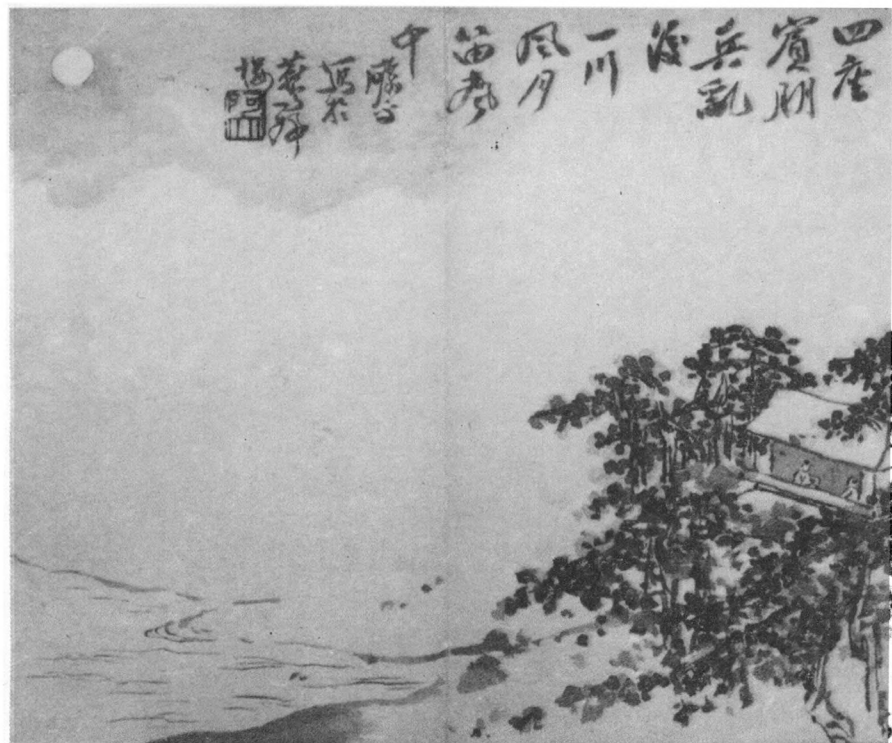 四座
賓朋
兵亂
後
一川
風月
笛聲
中
寫於
樓